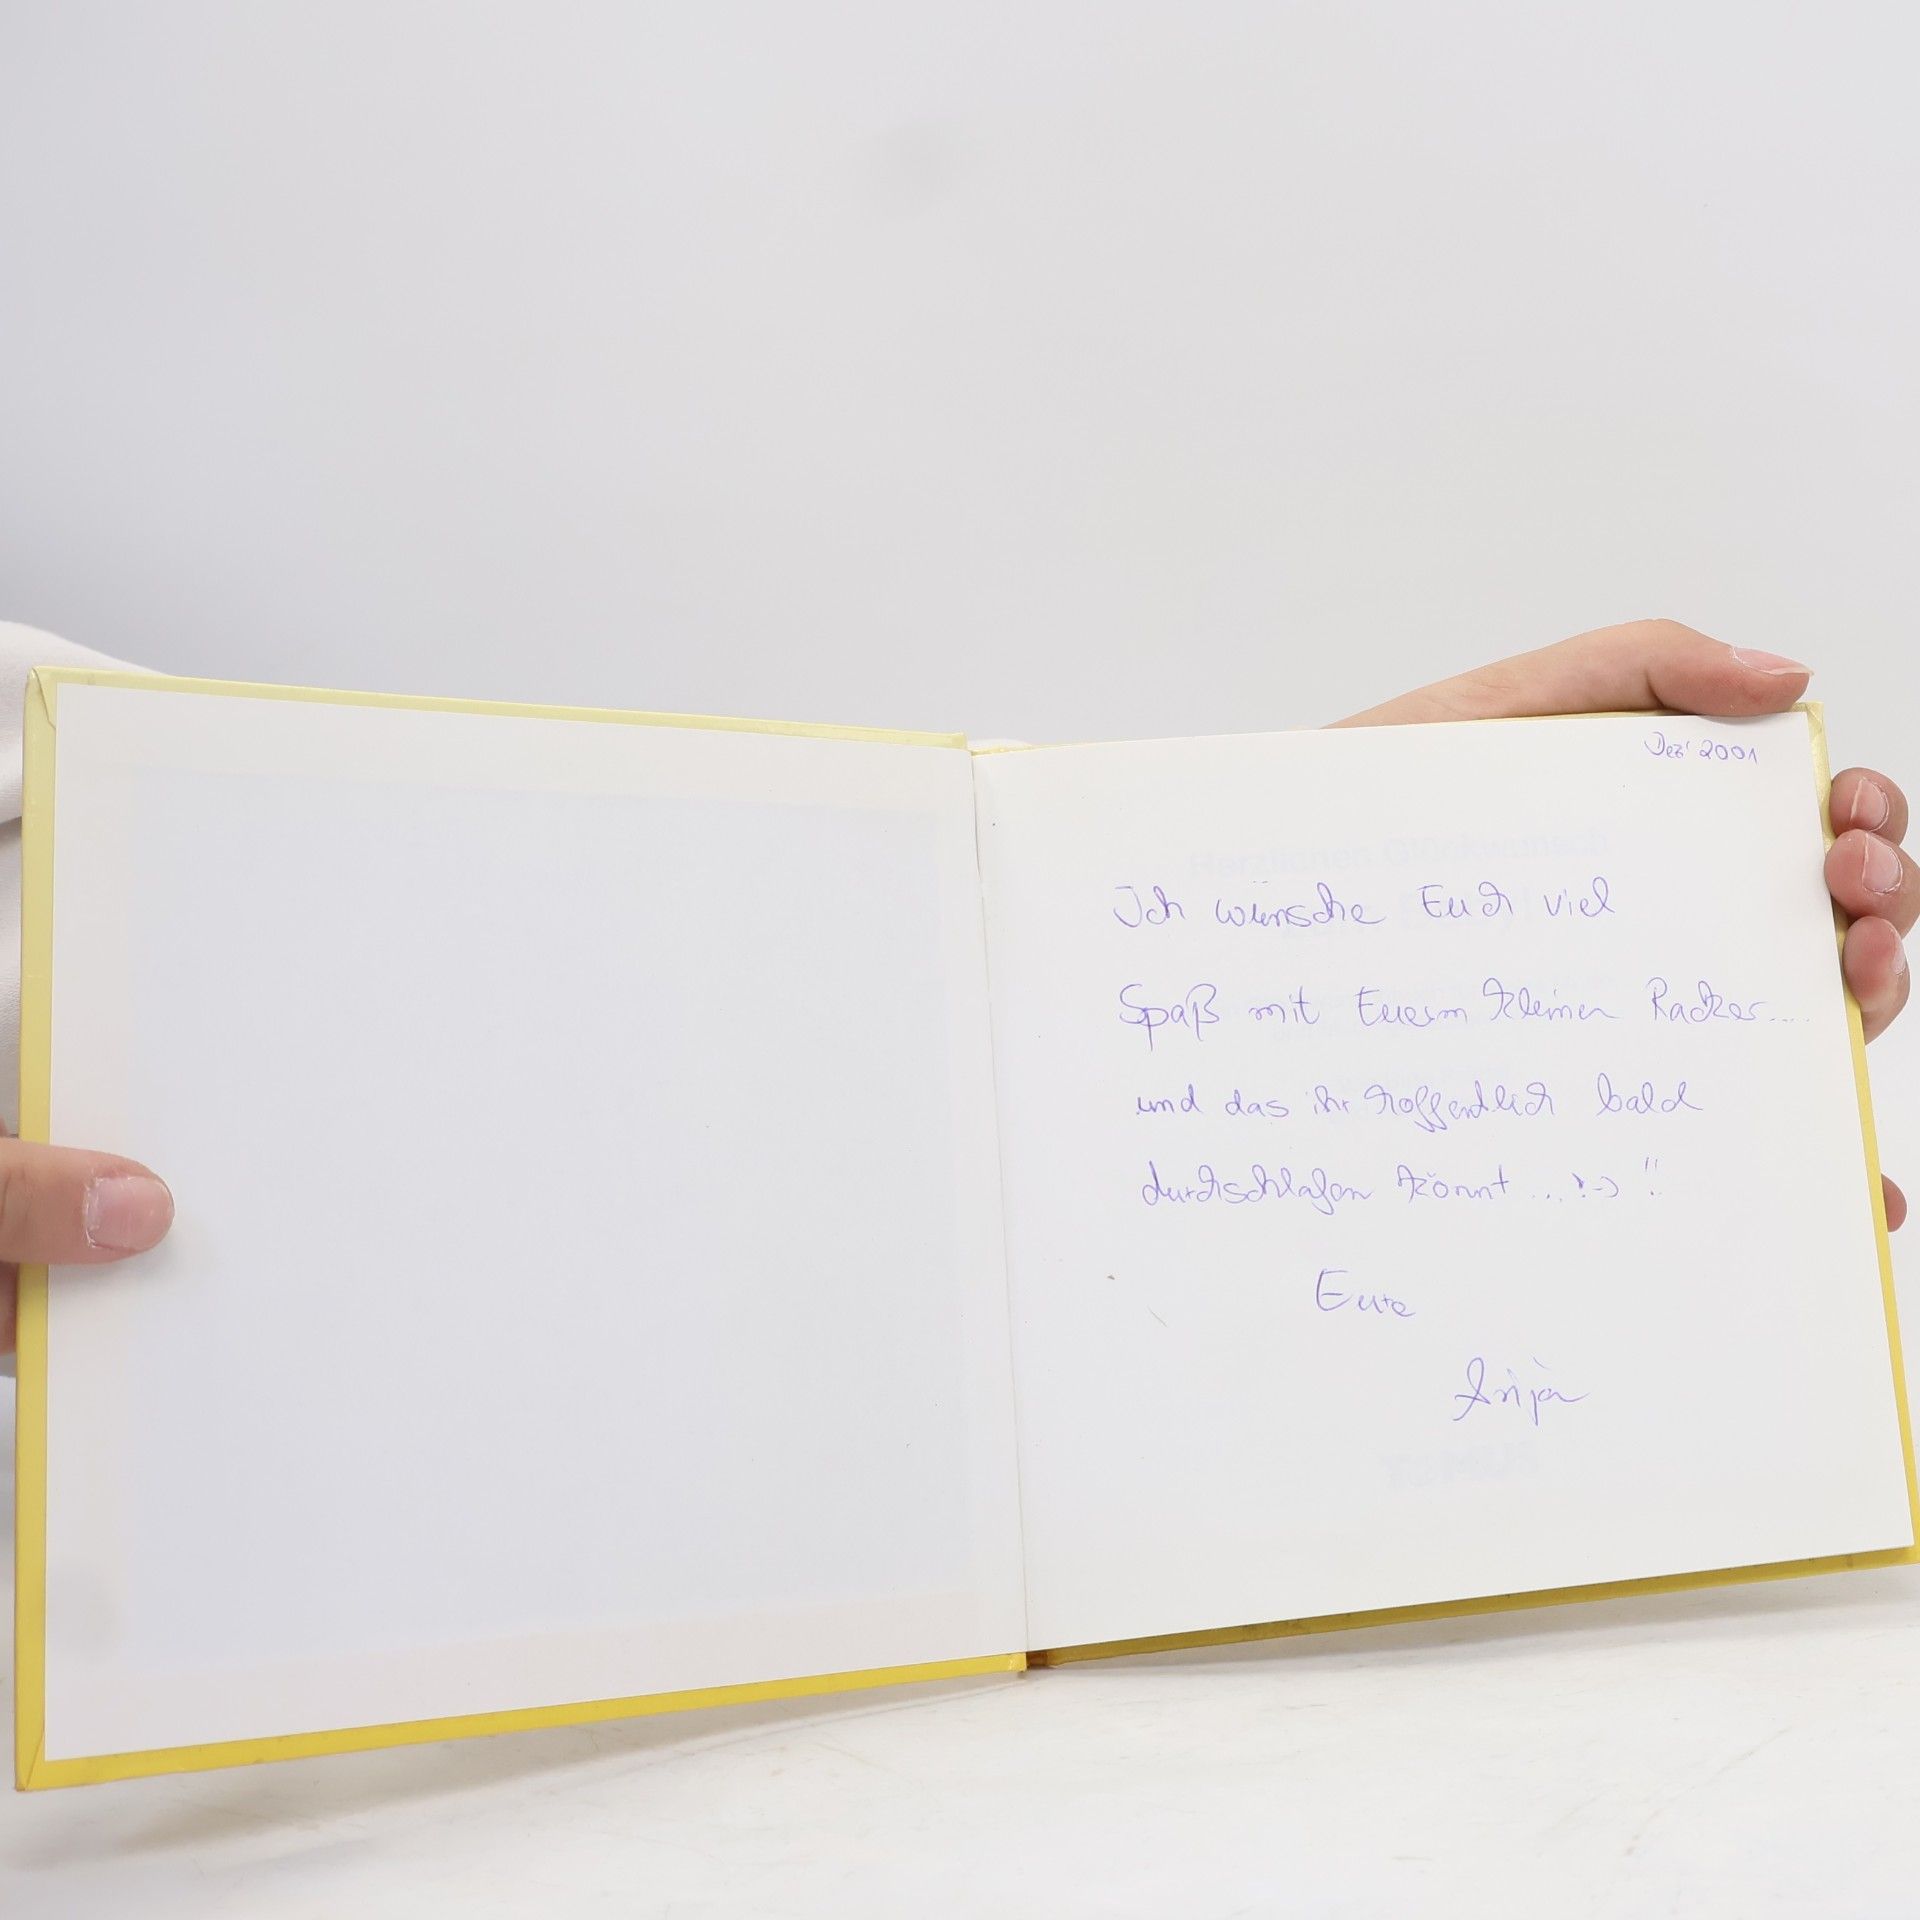 Dez' 2001
Herzlichen Glückwunsch
Ich wünsche Euch viel
Spaß mit Euerm kleinen Racker....
und das ihr hoffentlich bald
durchschlafen könnt ... :-) !!
Eure
Anja